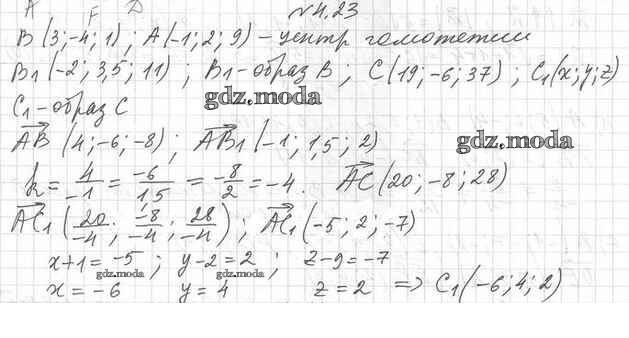 №4.23
B (3; -4; 1) ; A (-1; 2; 9) - центр гомотетии
B₁ (-2; 3,5; 11) ; B₁ - образ B ; C (19; -6; 37) ; C₁ (x; y; z)
C₁ - образ C gdz.moda
AB (4; -6; -8) ; AB₁ (-1; 1,5; 2) gdz.moda
k = 4/-1 = -6/1,5 = -8/2 = -4. AC (20; -8; 28)
AC₁ (20/-4 ; -8/-4 ; 28/-4) ; AC₁ (-5; 2; -7)
x+1 = -5 ; y-2 = 2 ; z-9 = -7
gdz.moda gdz.moda
x = -6 y = 4 z = 2 => C₁ (-6; 4; 2)